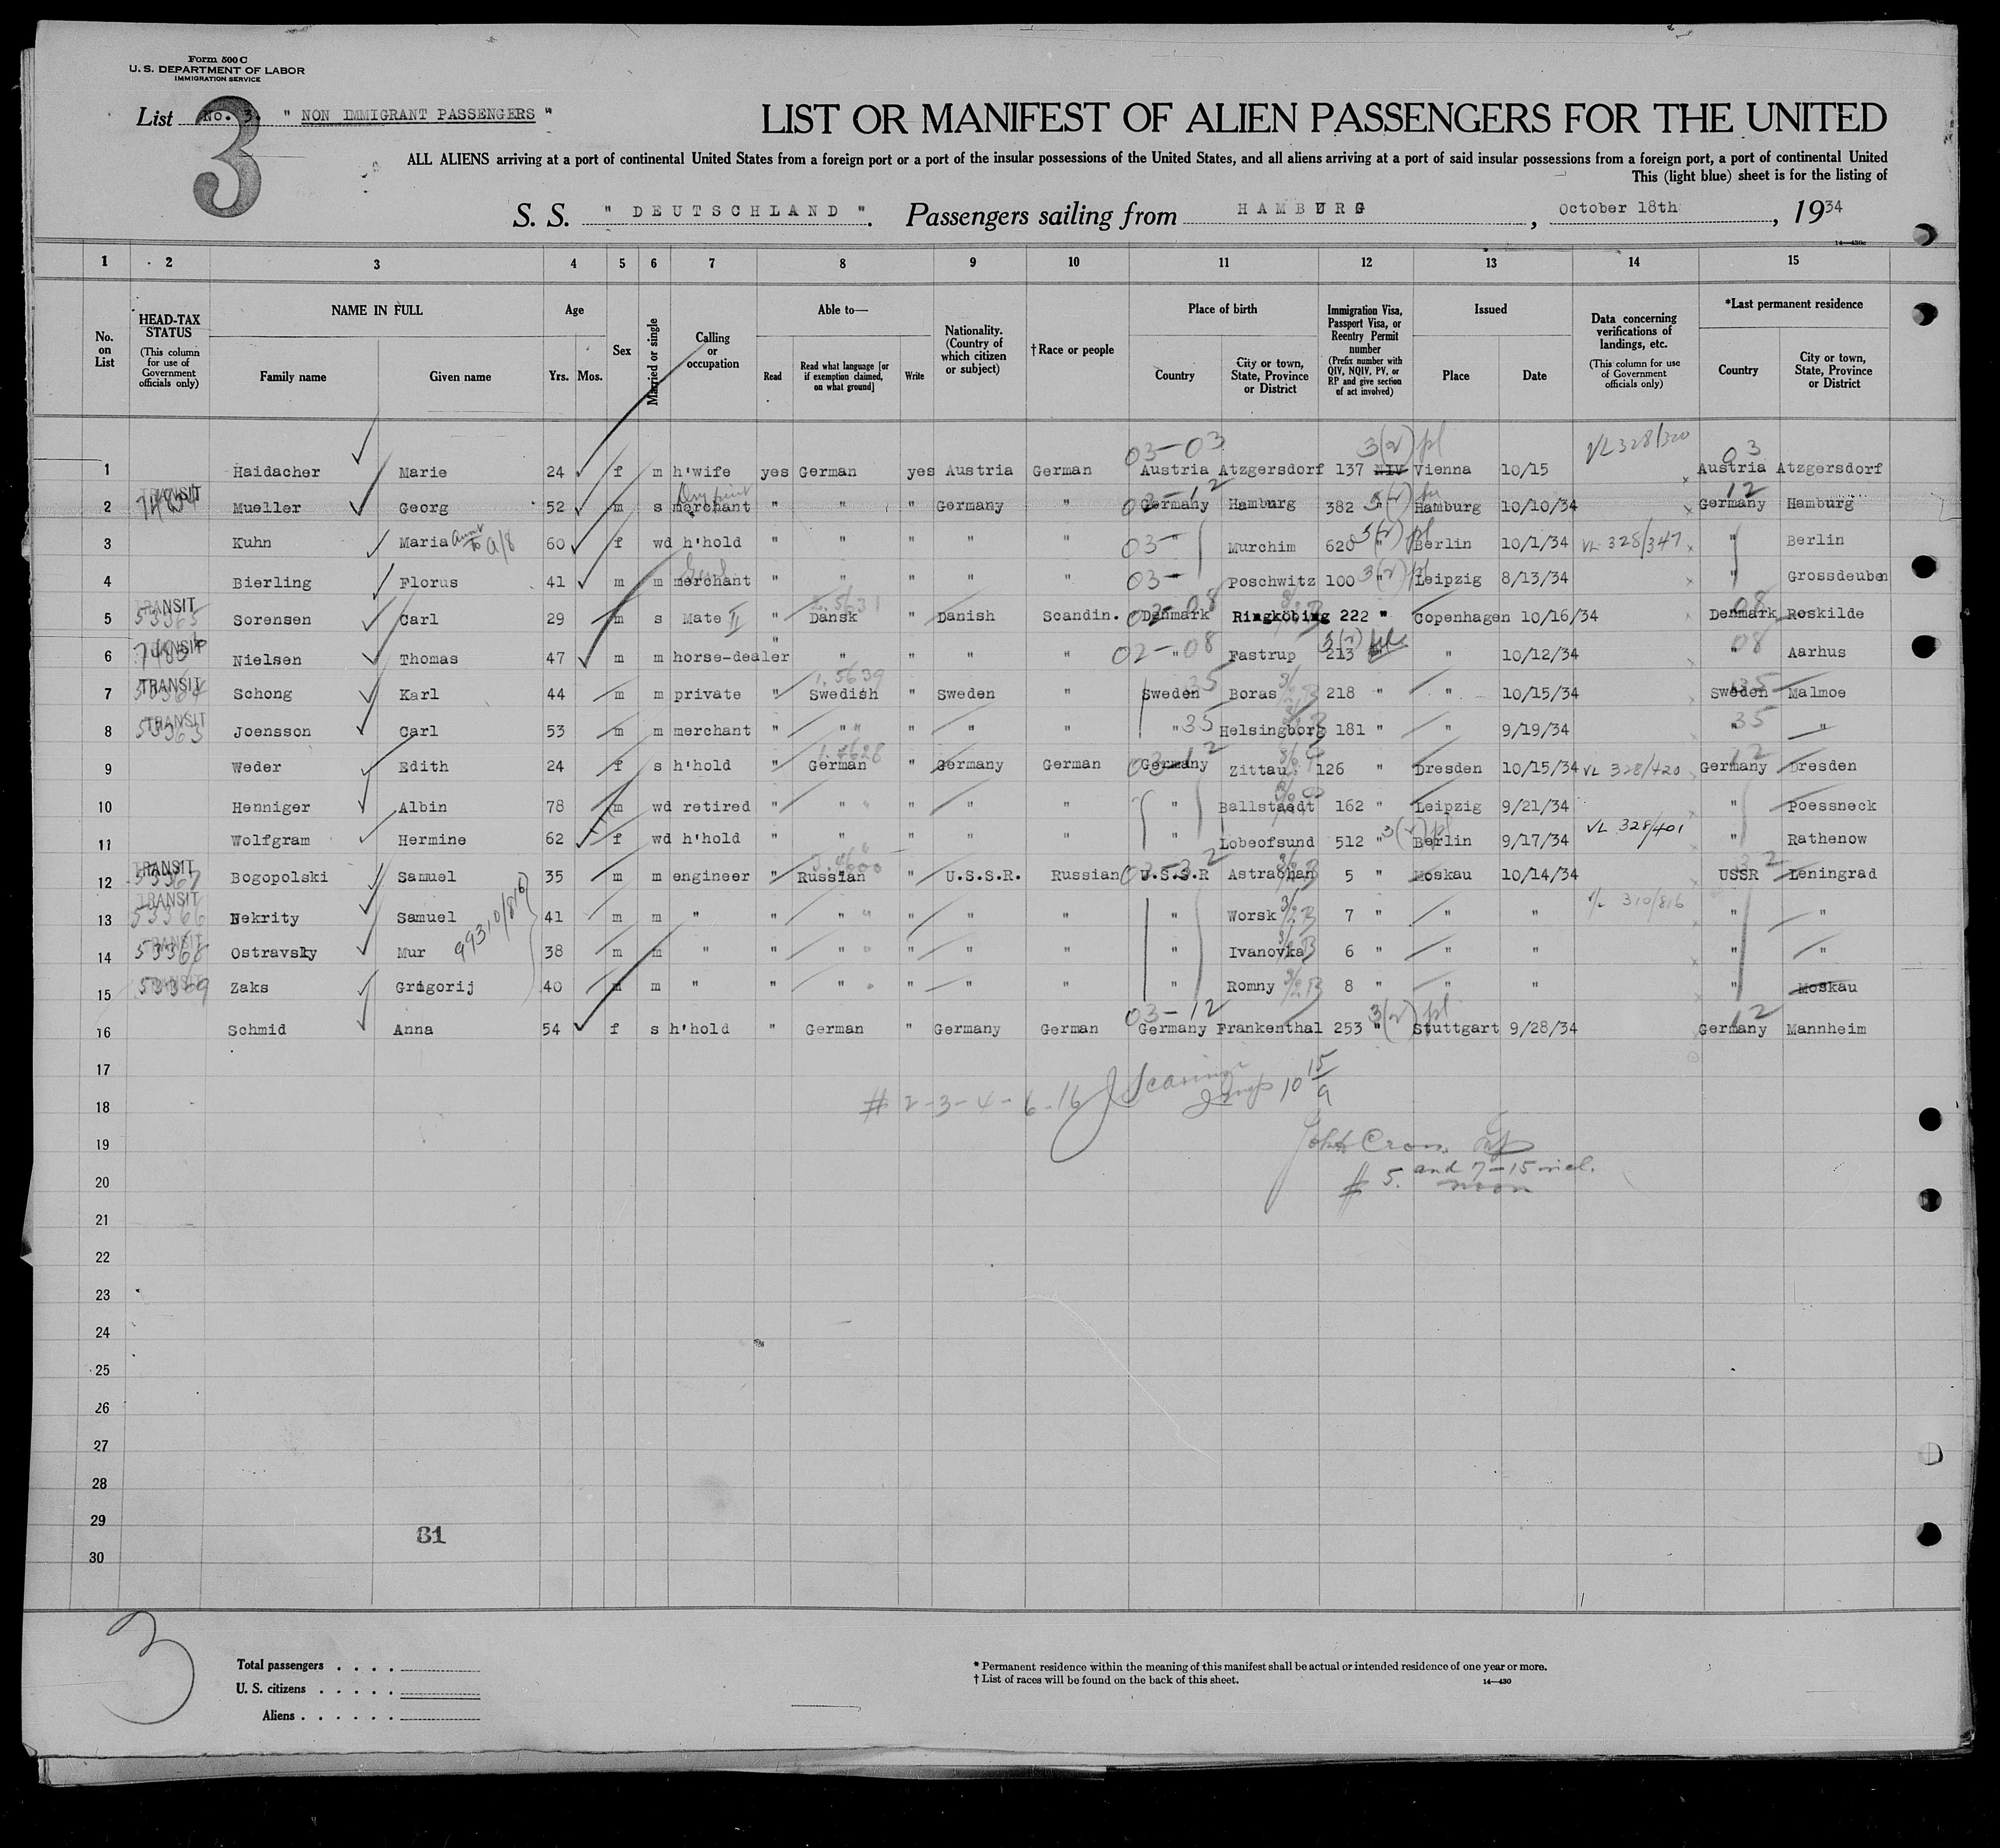 Form 500 C
U. S. DEPARTMENT OF LABOR
IMMIGRATION SERVICE
List No. 3. " NON IMMIGRANT PASSENGERS "
3
LIST OR MANIFEST OF ALIEN PASSENGERS FOR THE UNITED
ALL ALIENS arriving at a port of continental United States from a foreign port or a port of the insular possessions of the United States, and all aliens arriving at a port of said insular possessions from a foreign port, a port of continental United
This (light blue) sheet is for the listing of
S. S. " DEUTSCHLAND ". Passengers sailing from HAMBURG, October 18th, 1934
14—430c
1 2 3 4 5 6 7 8 9 10 11 12 13 14 15
No. on List
HEAD-TAX STATUS (This column for use of Government officials only)
NAME IN FULL
Family name Given name
Age
Yrs. Mos.
Sex
Married or single
Calling or occupation
Able to—
Read Read what language [or if exemption claimed, on what ground] Write
Nationality. (Country of which citizen or subject)
†Race or people
Place of birth
Country City or town, State, Province or District
Immigration Visa, Passport Visa, or Reentry Permit number (Prefix number with QIV, NQIV, PV, or RP and give section of act involved)
Issued
Place Date
Data concerning verifications of landings, etc. (This column for use of Government officials only)
*Last permanent residence
Country City or town, State, Province or District
03-03 3(2) pl VL 328/320 03
1 Haidacher Marie 24 f m h'wife yes German yes Austria German Austria Atzgersdorf 137 NIV Vienna 10/15 Austria Atzgersdorf
2 TRANSIT Mueller Georg 52 m s merchant " " " Germany " Germany Hamburg 382 " Hamburg 10/10/34 Germany 12 Hamburg
3 Kuhn Maria Aunt to a/8 60 f wd h'hold " " " " " 03- " Murchim 620 " Berlin 10/1/34 VL 328/347 " Berlin
4 Bierling Florus 41 m m merchant " " " " " 03- " Poschwitz 100 " Leipzig 8/13/34 " Grossdeuben
5 TRANSIT 53365 Sorensen Carl 29 m s Mate II " Dansk " Danish Scandin. Denmark Ringkobing 222 " Copenhagen 10/16/34 Denmark 08 Roskilde
6 TRANSIT Nielsen Thomas 47 m m horse-dealer " " " " " 02-08 " Fastrup 213 " " 10/12/34 " 08 Aarhus
7 TRANSIT Schong Karl 44 m m private " Swedish " Sweden " Sweden 35 Boras 218 " " 10/15/34 Sweden 35 Malmoe
8 TRANSIT 53363 Joensson Carl 53 m m merchant " " " " " " 35 Helsingborg 181 " " 9/19/34 " 35 "
9 Weder Edith 24 f s h'hold " German " Germany German Germany Zittau 126 " Dresden 10/15/34 VL 328/420 Germany 12 Dresden
10 Henniger Albin 78 m wd retired " " " " " " Ballstaedt 162 " Leipzig 9/21/34 " Poessneck
11 Wolfgram Hermine 62 f wd h'hold " " " " " " Lobeofsund 512 " 3(2) pl Berlin 9/17/34 VL 328/401 " Rathenow
12 TRANSIT 53367 Bogopolski Samuel 35 m m engineer " Russian " U.S.S.R. Russian U.S.S.R Astrachan 5 " Moskau 10/14/34 USSR 32 Leningrad
13 TRANSIT 53366 Nekrity Samuel 41 m m " " " " " " " Worsk 7 " " " VL 310/816 " "
14 TRANSIT 53368 Ostravsky Mur 99310/816 38 m m " " " " " " " Ivanovka 6 " " " " "
15 TRANSIT 53369 Zaks Grigorij 40 m m " " " " " " " Romny 8 " " " " Moskau
03-12 3(2) pl 12
16 Schmid Anna 54 f s h'hold " German " Germany German Germany Frankenthal 253 " Stuttgart 9/28/34 Germany Mannheim
17
18 # 2-3-4-6-16 Insp 10 15/9
19 John Cron Insp
20 # 5. and 7-15 incl.
21
22
23
24
25
26
27
28
29
81
30
3
Total passengers . . . .
U. S. citizens . . . . .
Aliens . . . . . .
* Permanent residence within the meaning of this manifest shall be actual or intended residence of one year or more.
† List of races will be found on the back of this sheet. 14—430